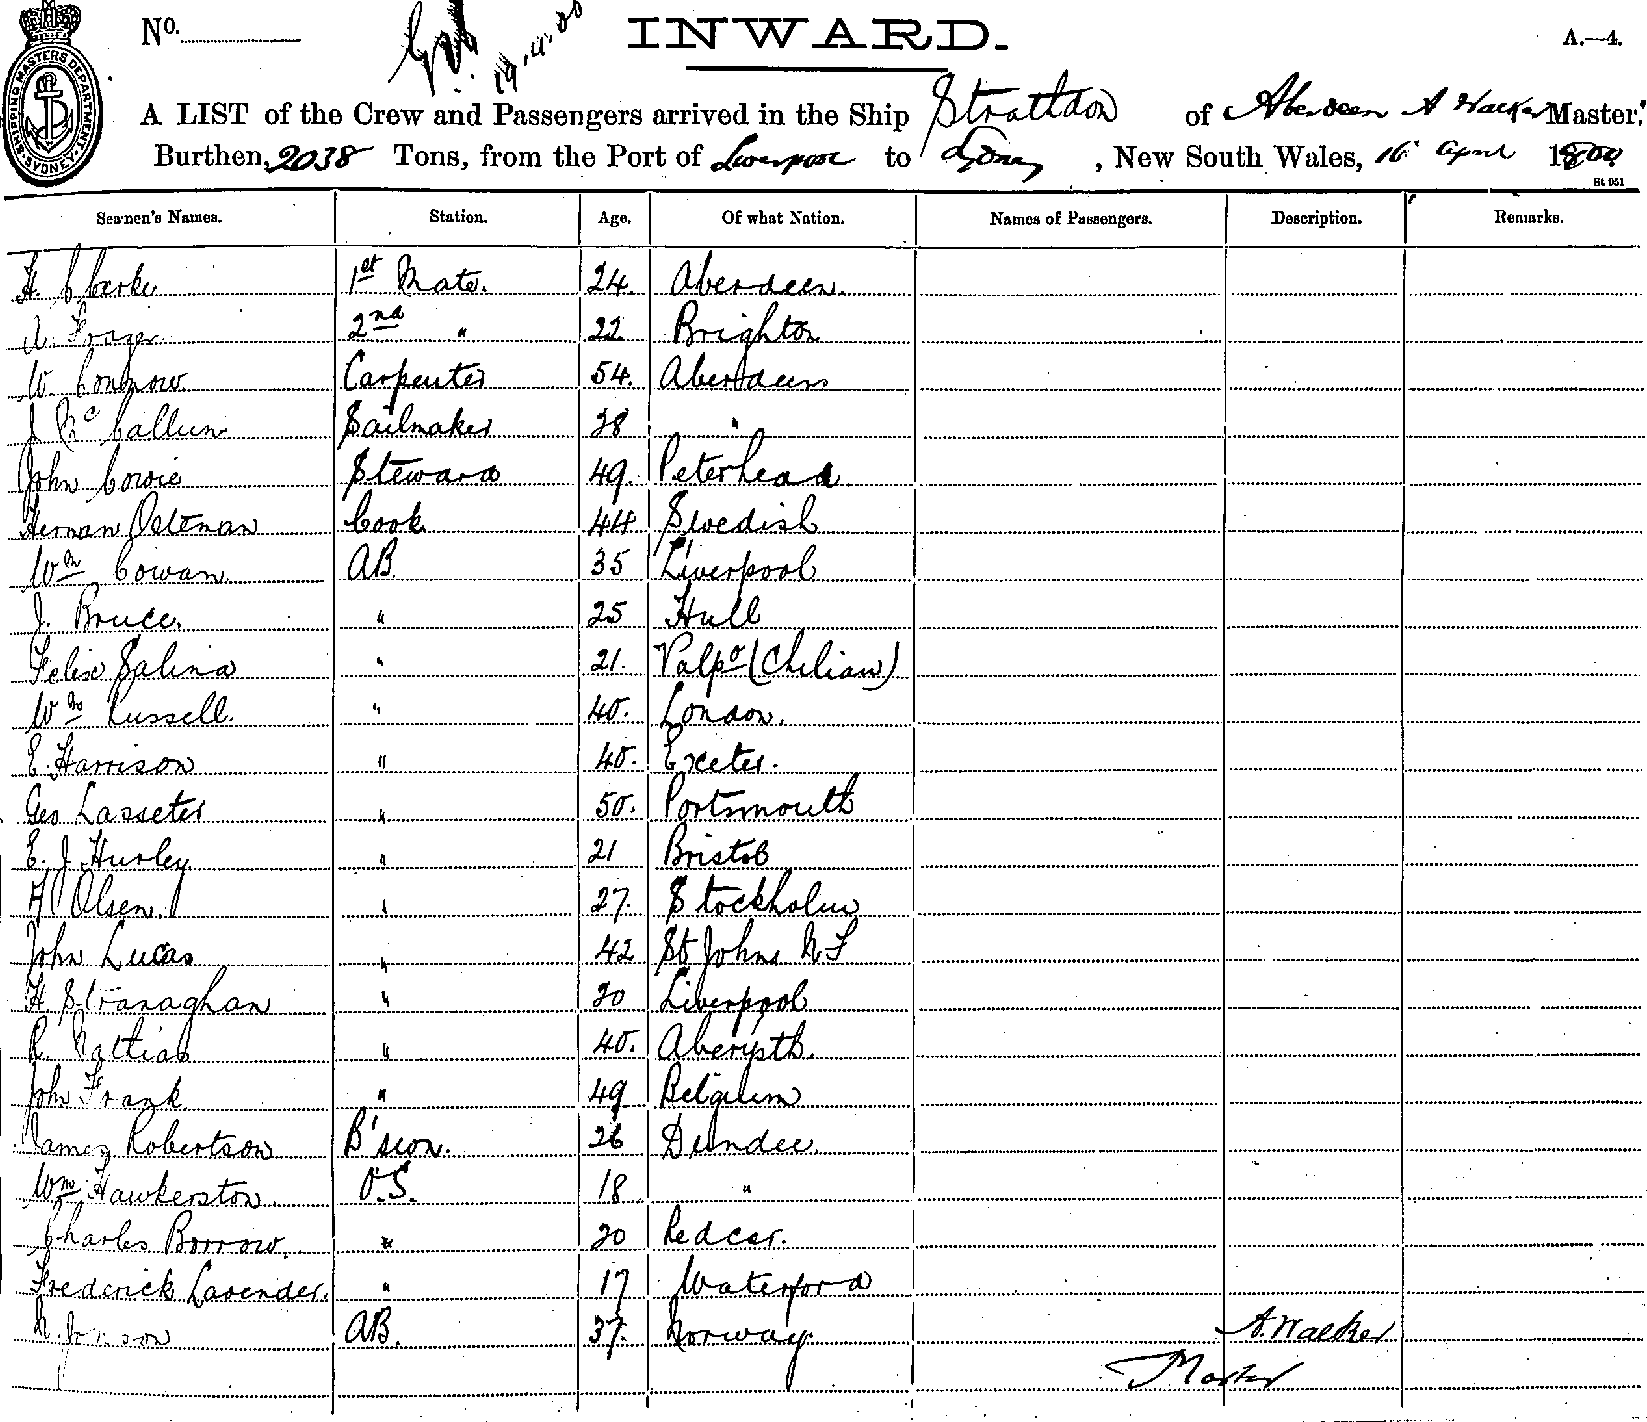 No.
19.4.00
INWARD.
A.—4.
SHIPPING MASTERS DEPARTMENT. SYDNEY
A LIST of the Crew and Passengers arrived in the Ship Strathdon of Aberdeen A Walker Master,
Burthen, 2038 Tons, from the Port of Liverpool to Sydney, New South Wales, 16 April 1900
St 951
Seamen's Names. Station. Age. Of what Nation. Names of Passengers. Description. Remarks.
H. Clarke 1st Mate. 24. Aberdeen.
A. Frazer 2nd " 22 Brighton
W. Carpenter 54. Aberdeen
J McCallum Sailmaker 38 "
John Cowie Steward 49. Peterhead
Herman Ostman Cook 44 Swedish
Wm Cowan AB 35 Liverpool
J. Bruce. " 25 Hull
Felix Salina " 21. Valpo (Chilian)
Wm Russell. " 40. London.
E. Harrison " 40. Exeter.
Geo Lasseter " 50. Portsmouth
E. J Hurley " 21 Bristol
Olsen. " 27. Stockholm
John Lucas " 42 St Johns N F
H Stranaghan " 20 Liverpool
R. Mattias " 40. Aberysth.
John Frank " 49 Belgium
James Robertson B'swn. 26 Dundee.
Wm Hawkerston. O.S. 18 "
Charles Borrow. " 20 Redcar.
Frederick Lavender. " 17 Waterford
N. Jonson AB. 37. Norway. A. Walker
Master